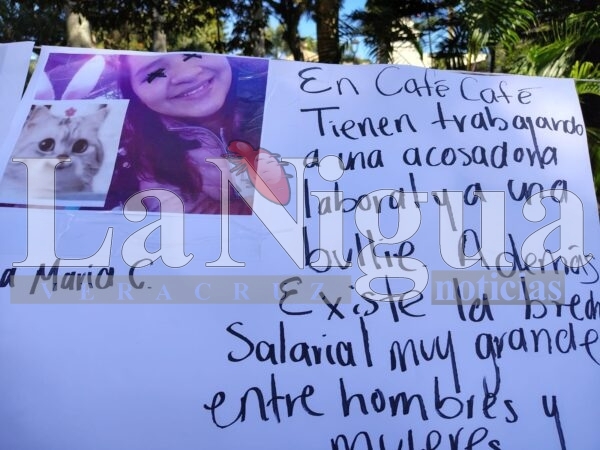 En Café Café
Tienen trabajando
a una acosadora
laboral y a una
bullie Además
Existe la brecha
Salarial muy grande
entre hombres y
mujeres
a Maria C.
LaNigua
VERACRUZ noticias